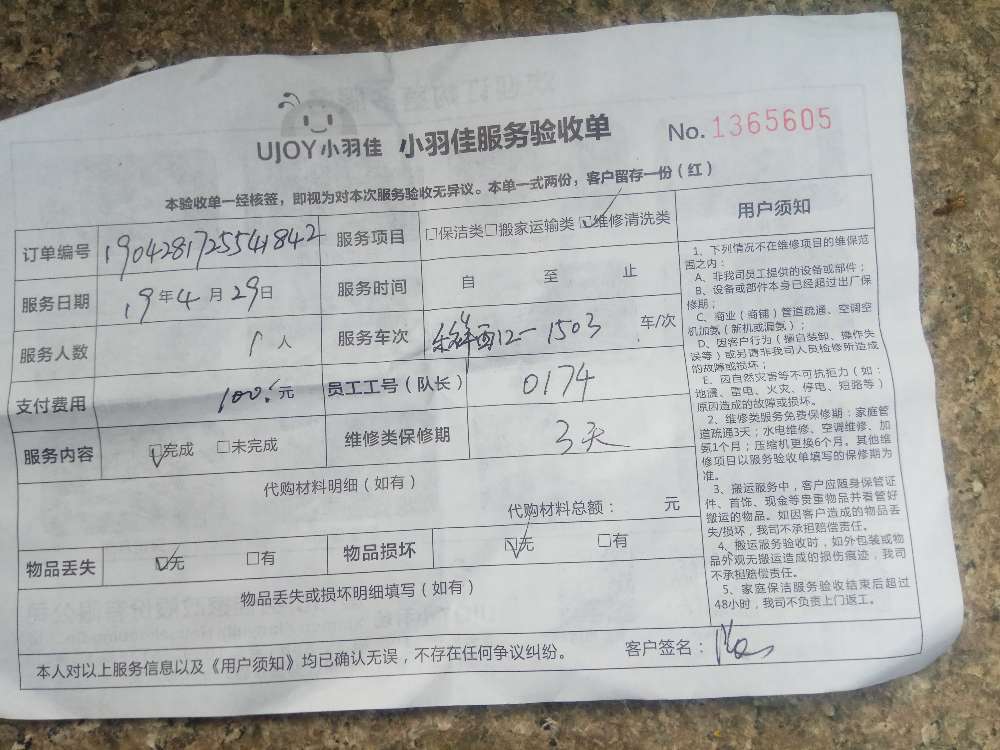 UJOY小羽佳 小羽佳服务验收单 No. 1365605
本验收单一经核签，即视为对本次服务验收无异议。本单一式两份，客户留存一份（红）
订单编号 190428172554184 2 服务项目 □保洁类□搬家运输类☑维修清洗类
服务日期 19年4月29日 服务时间 自 至 止
服务人数 1人 服务车次 西12-1503 车/次
支付费用 100元 员工工号（队长） 0174
服务内容 ☑完成 □未完成 维修类保修期 3天
代购材料明细（如有）
代购材料总额： 元
物品丢失 ☑无 □有 物品损坏 ☑无 □有
物品丢失或损坏明细填写（如有）
本人对以上服务信息以及《用户须知》均已确认无误，不存在任何争议纠纷。 客户签名：
用户须知
1、下列情况不在维修项目的维保范
围之内：
A、非我司员工提供的设备或部件；
B、设备或部件本身已经超过出厂保
修期；
C、商业（商铺）管道疏通、空调空
机加氨（新机或漏氨）；
D、因客户行为（擅自装卸、操作失
误等）或另请非我司人员检修所造成
的故障或损坏；
E、因自然灾害等不可抗拒力（如：
地震、雷电、火灾、停电、短路等）
原因造成的故障或损坏。
2、维修类服务免费保修期：家庭管
道疏通3天；水电维修、空调维修、加
氨1个月；压缩机更换6个月。其他维
修项目以服务验收单填写的保修期为
准。
3、搬运服务中，客户应随身保管证
件、首饰、现金等贵重物品并看管好
搬运的物品。如因客户造成的物品丢
失/损坏，我司不承担赔偿责任。
4、搬运服务验收时，如外包装或物
品外观无搬运造成的损伤痕迹，我司
不承担赔偿责任。
5、家庭保洁服务验收结束后超过
48小时，我司不负责上门返工。